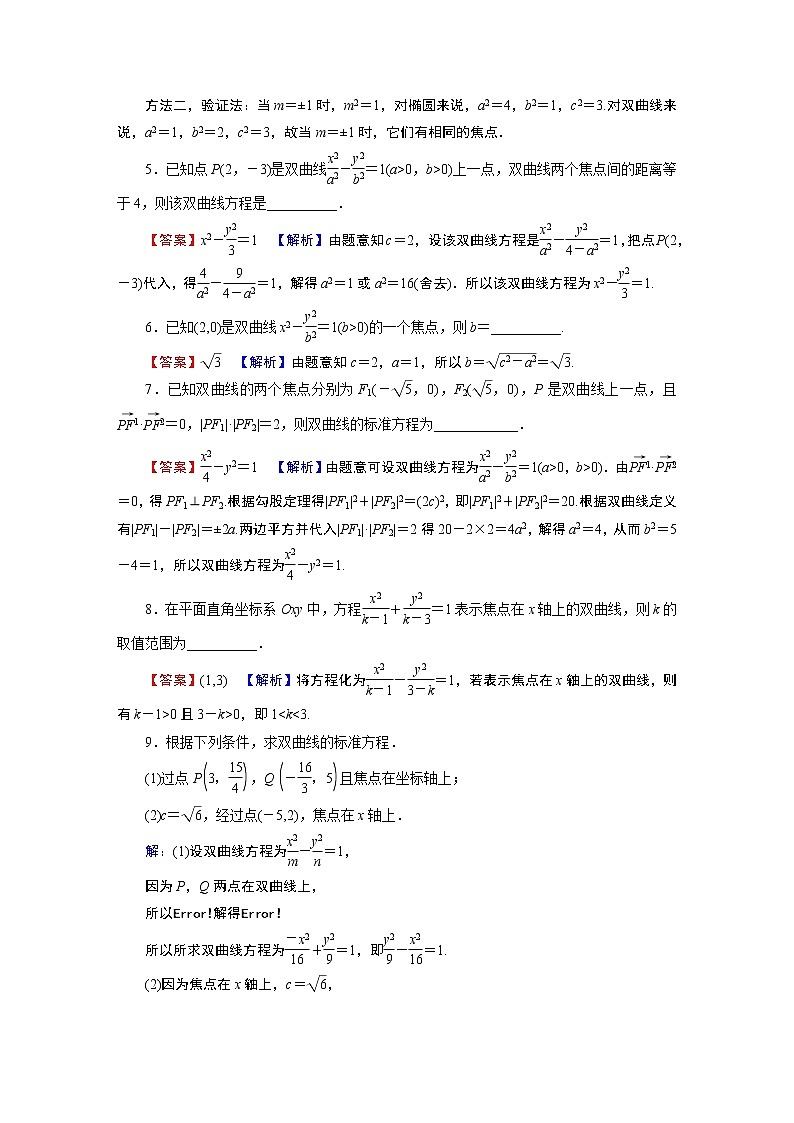 方法二，验证法：当 m＝±1 时，m2＝1，对椭圆来说，a2＝4，b2＝1，c2＝3.对双曲线来
说，a2＝1，b2＝2，c2＝3，故当 m＝±1 时，它们有相同的焦点．
5．已知点 P(2，－3)是双曲线x2/a2－y2/b2＝1(a>0，b>0)上一点，双曲线两个焦点间的距离等
于 4，则该双曲线方程是__________．
【答案】x2－y2/3＝1 【解析】由题意知c＝2，设该双曲线方程是x2/a2－y2/(4－a2)＝1，把点P(2，
－3)代入，得4/a2－9/(4－a2)＝1，解得 a2＝1 或 a2＝16(舍去)．所以该双曲线方程为 x2－y2/3＝1.
6．已知(2,0)是双曲线 x2－y2/b2＝1(b>0)的一个焦点，则 b＝__________.
【答案】√3 【解析】由题意知 c＝2，a＝1，所以 b＝√(c2－a2)＝√3.
7．已知双曲线的两个焦点分别为 F1(－√5，0)，F2(√5，0)，P 是双曲线上一点，且
PF→1·PF→2＝0，|PF1|·|PF2|＝2，则双曲线的标准方程为____________．
【答案】x2/4－y2＝1 【解析】由题意可设双曲线方程为x2/a2－y2/b2＝1(a>0，b>0)．由PF→1·PF→2
＝0，得 PF1⊥PF2.根据勾股定理得|PF1|2＋|PF2|2＝(2c)2，即|PF1|2＋|PF2|2＝20.根据双曲线定义
有|PF1|－|PF2|＝±2a.两边平方并代入|PF1|·|PF2|＝2 得 20－2×2＝4a2，解得 a2＝4，从而 b2＝5
－4＝1，所以双曲线方程为x2/4－y2＝1.
8．在平面直角坐标系 Oxy 中，方程x2/(k－1)＋y2/(k－3)＝1 表示焦点在 x 轴上的双曲线，则 k 的
取值范围为__________．
【答案】(1,3) 【解析】将方程化为x2/(k－1)－y2/(3－k)＝1，若表示焦点在 x 轴上的双曲线，则
有 k－1>0 且 3－k>0，即 1<k<3.
9．根据下列条件，求双曲线的标准方程．
(1)过点 P(3，15/4)，Q(－16/3，5)且焦点在坐标轴上；
(2)c＝√6，经过点(－5,2)，焦点在 x 轴上．
解：(1)设双曲线方程为x2/m－y2/n＝1，
因为 P，Q 两点在双曲线上，
所以Error!解得Error!
所以所求双曲线方程为－x2/16＋y2/9＝1，即y2/9－x2/16＝1.
(2)因为焦点在 x 轴上，c＝√6，